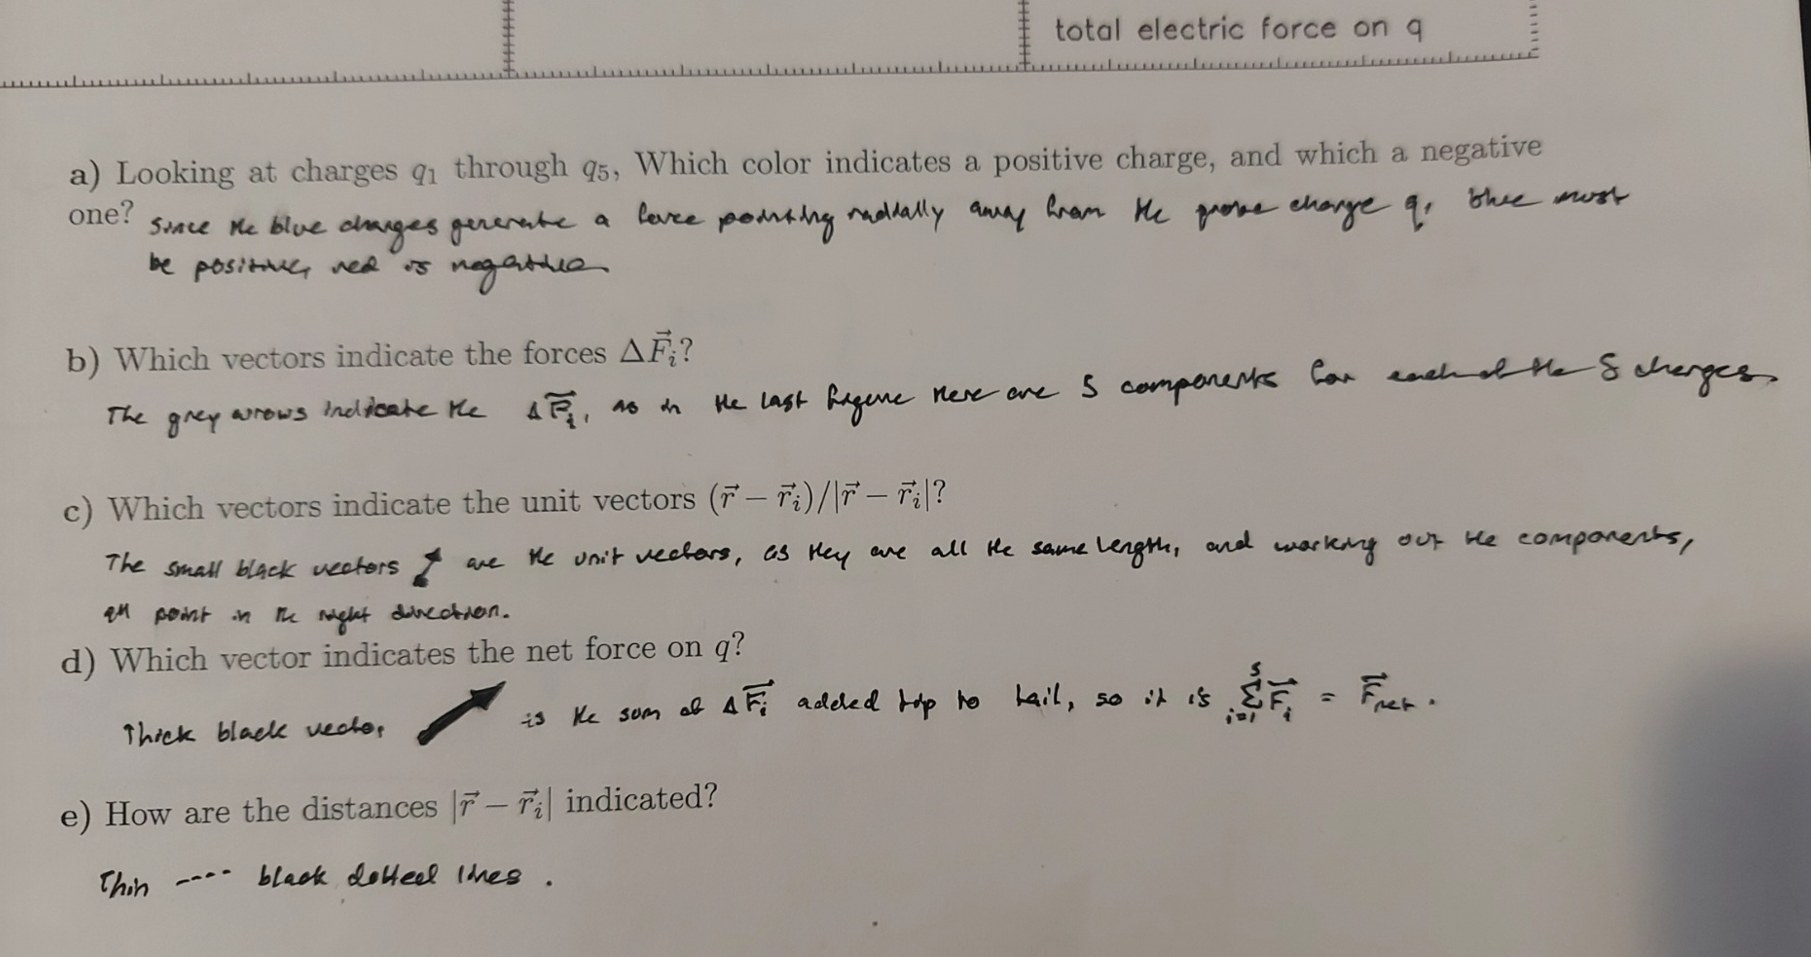 total electric force on q
a) Looking at charges q₁ through q₅, Which color indicates a positive charge, and which a negative
one? Since the blue charges generate a force pointing radially away from the probe charge q, blue must
be positive, red is negative.
b) Which vectors indicate the forces ΔF⃗ᵢ?
The grey arrows indicate the ΔF⃗ᵢ, as in the last figure there are 5 components for each of the 5 charges.
c) Which vectors indicate the unit vectors (r⃗ − r⃗ᵢ)/|r⃗ − r⃗ᵢ|?
The small black vectors are the unit vectors, as they are all the same length, and working out the components,
all point in the right direction.
d) Which vector indicates the net force on q?
Thick black vector, is the sum of ΔF⃗ᵢ added tip to tail, so it is ∑⁵ᵢ₌₁ F⃗ᵢ = F⃗net.
e) How are the distances |r⃗ − r⃗ᵢ| indicated?
Thin ---- black dotted lines.